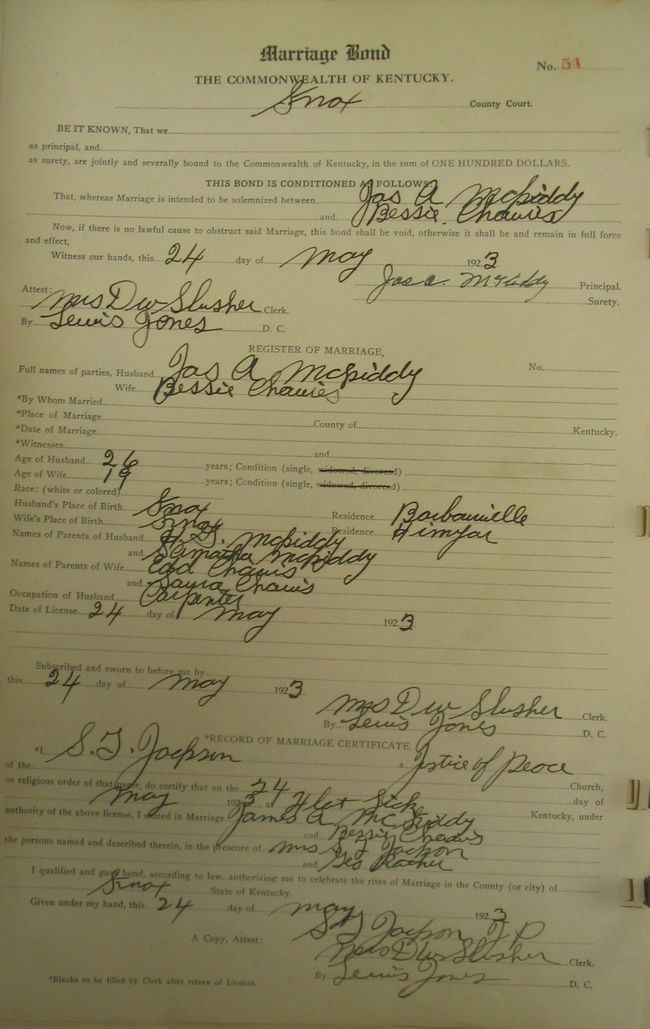 Marriage Bond
No. 54
THE COMMONWEALTH OF KENTUCKY.
Knox County Court.
BE IT KNOWN, That we
as principal, and
as surety, are jointly and severally bound to the Commonwealth of Kentucky, in the sum of ONE HUNDRED DOLLARS.
THIS BOND IS CONDITIONED AS FOLLOWS:
That, whereas Marriage is intended to be solemnized between Jas A McKiddy
and Bessie Chawis
Now, if there is no lawful cause to obstruct said Marriage, this bond shall be void, otherwise it shall be and remain in full force
and effect,
Witness our hands, this 24 day of May 1923
Jas A. McKiddy Principal.
Attest: Surety.
Mrs D W Slusher Clerk.
By Lewis Jones D. C.
REGISTER OF MARRIAGE,
Full names of parties, Husband Jas A McKiddy No.
Wife Bessie Chawis
*By Whom Married
*Place of Marriage
*Date of Marriage County of Kentucky.
*Witnesses and
Age of Husband 26 years; Condition (single, widowed, divorced)
Age of Wife 19 years; Condition (single, widowed, divorced)
Race: (white or colored)
Husband's Place of Birth Knox Residence Barbourville
Wife's Place of Birth Knox Residence Himyar
Names of Parents of Husband McKiddy
and Samatha McKiddy
Names of Parents of Wife Chawis
and Laura Chawis
Occupation of Husband Carpenter
Date of License 24 day of May 1923
Subscribed and sworn to before me by
this 24 day of May 1923
Mrs D W Slusher Clerk.
By Lewis Jones D. C.
*RECORD OF MARRIAGE CERTIFICATE.
*I, S. T. Jackson a Justice of Peace
of the Church,
or religious order of that name, do certify that on the 24 day of
May 1923 at Flat Lick Kentucky, under
authority of the above license, I united in Marriage James A McKiddy
and Bessie Chawis
the persons named and described therein, in the presence of Mrs S T Jackson
and Geo
I qualified and gave bond, according to law, authorizing me to celebrate the rites of Marriage in the County (or city) of
Knox State of Kentucky.
Given under my hand, this 24 day of May 1923
S T Jackson J P
A Copy, Attest: Mrs D W Slusher Clerk.
*Blanks to be filled by Clerk after return of License. By Lewis Jones D. C.